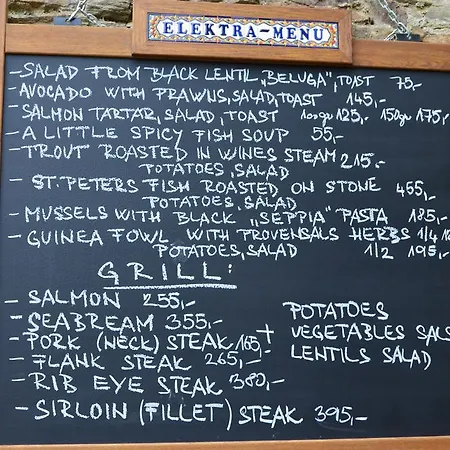 ELEKTRA-MENU
- SALAD FROM BLACK LENTIL „BELUGA", TOAST 75,-
- AVOCADO WITH PRAWNS, SALAD, TOAST 145,-
- SALMON TARTAR, SALAD, TOAST 100gr 125,- 150gr 175,-
- A LITTLE SPICY FISH SOUP 55,-
- TROUT ROASTED IN WINES STEAM 215,-
POTATOES, SALAD
- ST. PETERS FISH ROASTED ON STONE 455,-
POTATOES, SALAD
- MUSSELS WITH BLACK „SEPPIA" PASTA 185,-
- GUINEA FOWL WITH PROVENSALS HERBS 1/4
POTATOES, SALAD 1/2 195,-
GRILL:
- SALMON 255,-
- SEABREAM 355,-
- PORK (NECK) STEAK 165,-
- FLANK STEAK 265,-
- RIB EYE STEAK 380,-
- SIRLOIN (FILLET) STEAK 395,-
+ POTATOES
VEGETABLES SALS
LENTILS SALAD